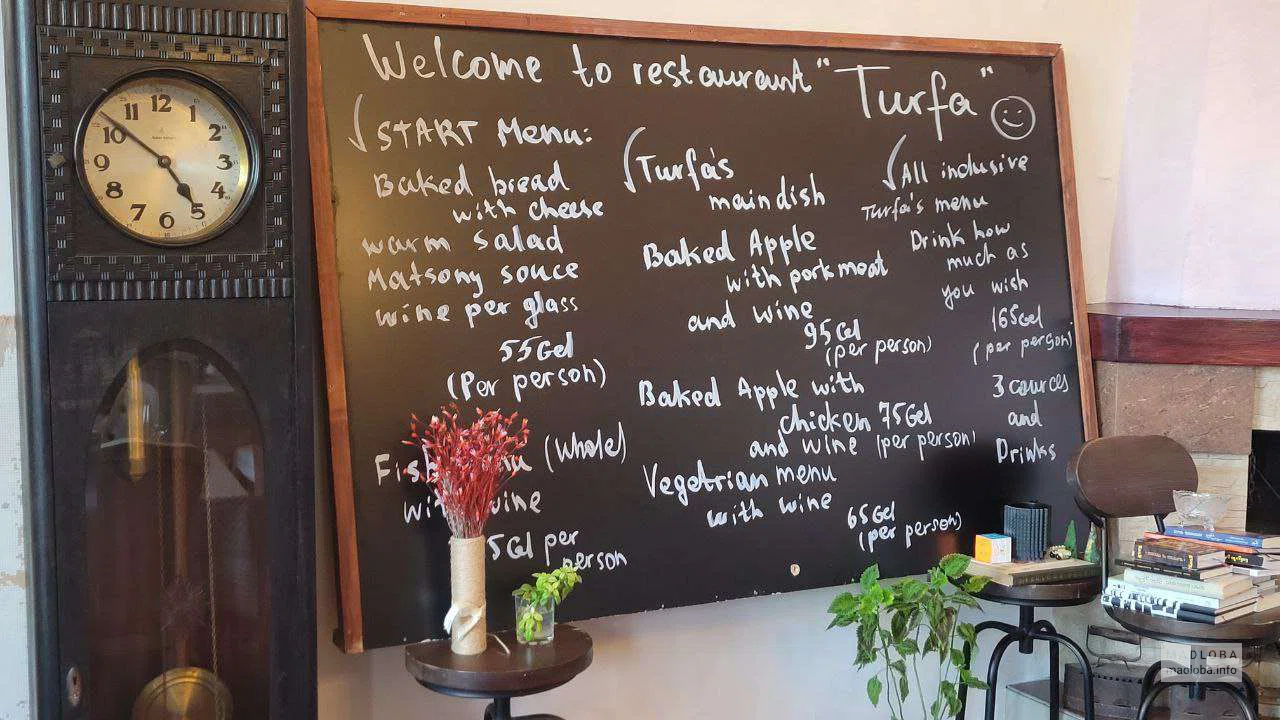 Welcome to restaurant "Turfa"
START Menu:
Baked bread
with cheese
warm salad
Matsony souce
wine per glass
55Gel
(Per person)
(Whole)
wine
5Gel per
person
Turfa's
maindish
Baked Apple
with porkmeat
and wine
95Gel
(per person)
Baked Apple with
chicken 75Gel
and wine (per person)
Vegetrian menu
with wine
65Gel
(per person)
All inclusive
Turfa's menu
Drink how
much as
you wish
165Gel
(per person)
3 cources
and
Drinks
12
1
2
3
4
5
6
7
8
9
10
11
MADLOBA
madloba.info